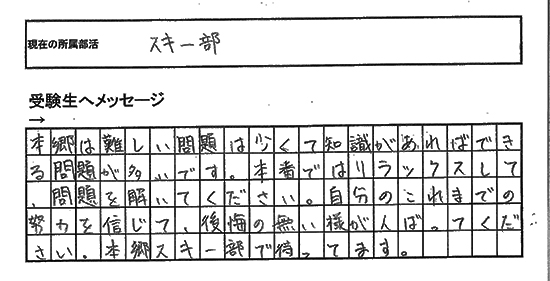 現在の所属部活 スキー部
受験生へメッセージ
→
本郷は難しい問題は少くて知識があればでき
る問題が多いです。本番ではリラックスして
、問題を解いてください。自分のこれまでの
努力を信じて、後悔の無い様がんばってくだ
さい。本郷スキー部で待ってます。